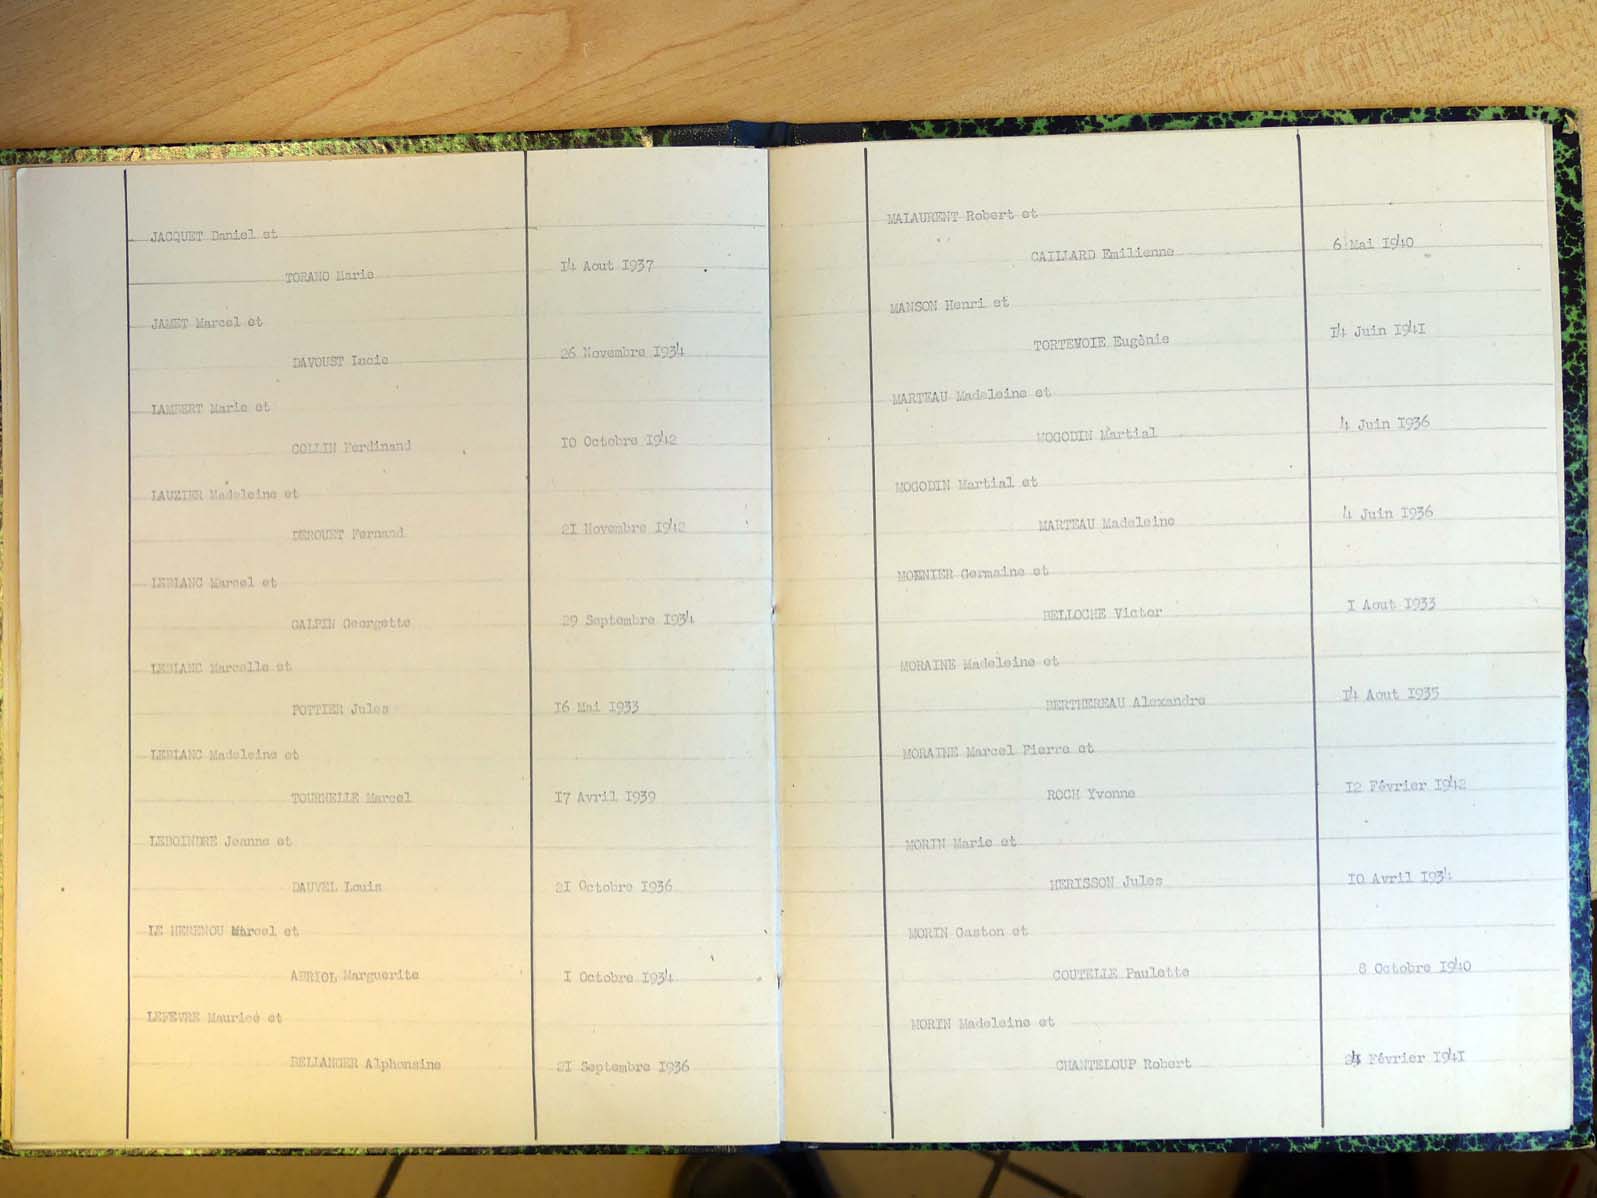 JACQUET Daniel et
TORANO Marie 14 Aout 1937
JAMET Marcel et
DAVOUST Lucie 26 Novembre 1934
LAMBERT Marie et
COLLIN Ferdinand 10 Octobre 1942
LAUZIER Madeleine et
DEROUET Fernand 21 Novembre 1942
LEBLANC Marcel et
GALPIN Georgette 29 Septembre 1934
LEBLANC Marcelle et
POTTIER Jules 16 Mai 1933
LEBLANC Madeleine et
TOURNELLE Marcel 17 Avril 1939
LEBOINDRE Jeanne et
DAUVEL Louis 21 Octobre 1936
LE HERENOU Marcel et
ABRIOL Marguerite 1 Octobre 1934
LEFEVRE Maurice et
BELLANGER Alphonsine 21 Septembre 1936
MALAURENT Robert et
CAILLARD Emilienne 6 Mai 1940
MANSON Henri et
TORTEVOIE Eugènie 14 Juin 1941
MARTEAU Madeleine et
MOGODIN Martial 4 Juin 1936
MOGODIN Martial et
MARTEAU Madeleine 4 Juin 1936
MOENIER Germaine et
BELLOCHE Victor 1 Aout 1933
MORAINE Madeleine et
BERTHEREAU Alexandre 14 Aout 1935
MORAINE Marcel Pierre et
ROCH Yvonne 12 Février 1942
MORIN Marie et
HERISSON Jules 10 Avril 1934
MORIN Gaston et
COUTELLE Paulette 8 Octobre 1940
MORIN Madeleine et
CHANTELOUP Robert Février 1941